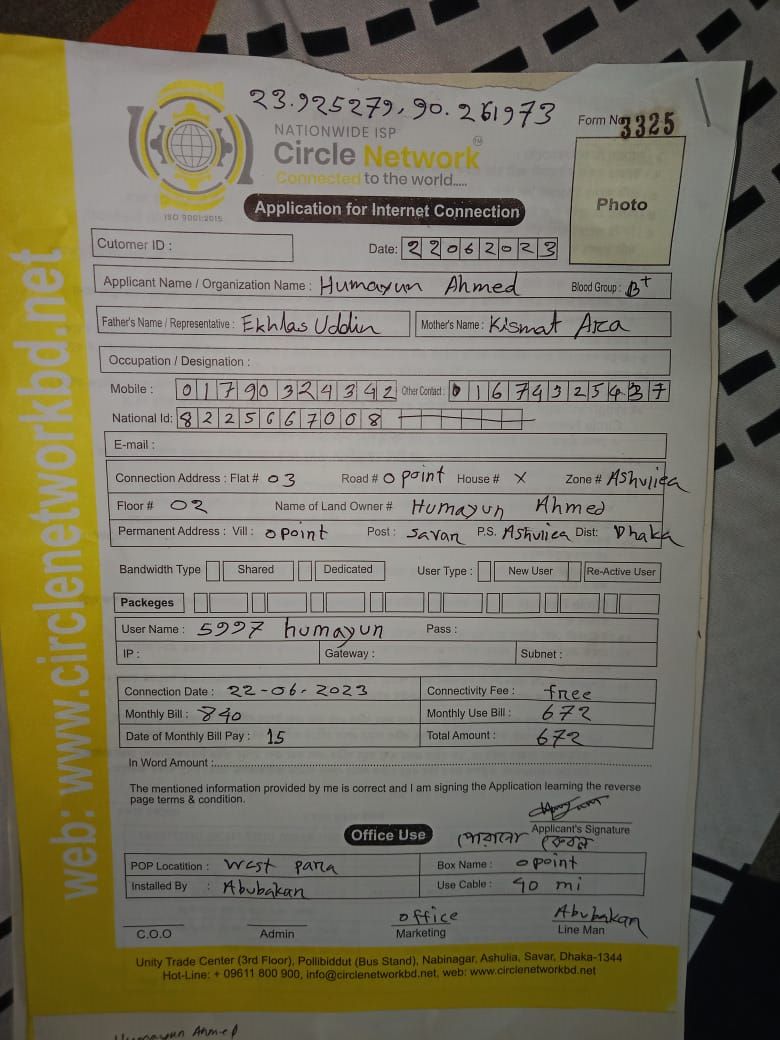 23.925279, 90.261973
Form No. 3325
NATIONWIDE ISP
Circle Network TM
Connected to the world.....
ISO 9001:2015
Application for Internet Connection
Photo
Cutomer ID :
Date: 22062023
Applicant Name / Organization Name : Humayun Ahmed Blood Group : B+
Father's Name / Representative : Ekhlas Uddin Mother's Name : Kismat Ara
Occupation / Designation :
Mobile : 01790324342 Other Contact : 01674325437
National Id: 8225667008
E-mail :
Connection Address : Flat # 03 Road # 0 point House # X Zone # Ashuliea
Floor # 02 Name of Land Owner # Humayun Ahmed
Permanent Address : Vill : 0 point Post : Savar P.S. Ashuliea Dist: Dhaka
Bandwidth Type Shared Dedicated User Type : New User Re-Active User
Packeges
User Name : 5997 humayun Pass :
IP : Gateway : Subnet :
Connection Date : 22-06-2023 Connectivity Fee : free
Monthly Bill : 840 Monthly Use Bill : 672
Date of Monthly Bill Pay : 15 Total Amount : 672
In Word Amount :
The mentioned information provided by me is correct and I am signing the Application learning the reverse
page terms & condition.
Applicant's Signature
Office Use
POP Locatition : West para Box Name : 0 point
Installed By : Abubakar Use Cable : 90 mi
C.O.O
Admin
office
Marketing
Abubakar
Line Man
Unity Trade Center (3rd Floor), Pollibiddut (Bus Stand), Nabinagar, Ashulia, Savar, Dhaka-1344
Hot-Line: + 09611 800 900, info@circlenetworkbd.net, web: www.circlenetworkbd.net
web: www.circlenetworkbd.net
Humayun Ahmed